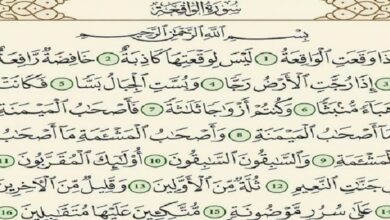 سُورَةُ الْوَاقِعَةِ
بِسْمِ اللَّهِ الرَّحْمَٰنِ الرَّحِيمِ
ذَا وَقَعَتِ الْوَاقِعَةُ ١ لَيْسَ لِوَقْعَتِهَا كَاذِبَةٌ ٢ خَافِضَةٌ رَّافِعَةٌ
٣ إِذَا رُجَّتِ الْأَرْضُ رَجًّا ٤ وَبُسَّتِ الْجِبَالُ بَسًّا ٥ فَكَانَتْ
هَبَاءً مُّنۢبَثًّا ٦ وَكُنتُمْ أَزْوَاجًا ثَلَاثَةً ٧ فَأَصْحَابُ الْمَيْمَنَةِ
مَا أَصْحَابُ الْمَيْمَنَةِ ٨ وَأَصْحَابُ الْمَشْئَمَةِ مَا أَصْحَابُ
الْمَشْئَمَةِ ٩ وَالسَّابِقُونَ السَّابِقُونَ ١٠ أُولَٰئِكَ الْمُقَرَّبُونَ ١١
جَنَّاتِ النَّعِيمِ ١٢ ثُلَّةٌ مِّنَ الْأَوَّلِينَ ١٣ وَقَلِيلٌ مِّنَ الْآخِرِينَ
عَلَىٰ سُرُرٍ مَّوْضُونَةٍ ١٥ مُّتَّكِئِينَ عَلَيْهَا مُتَقَابِلِينَ ١٦